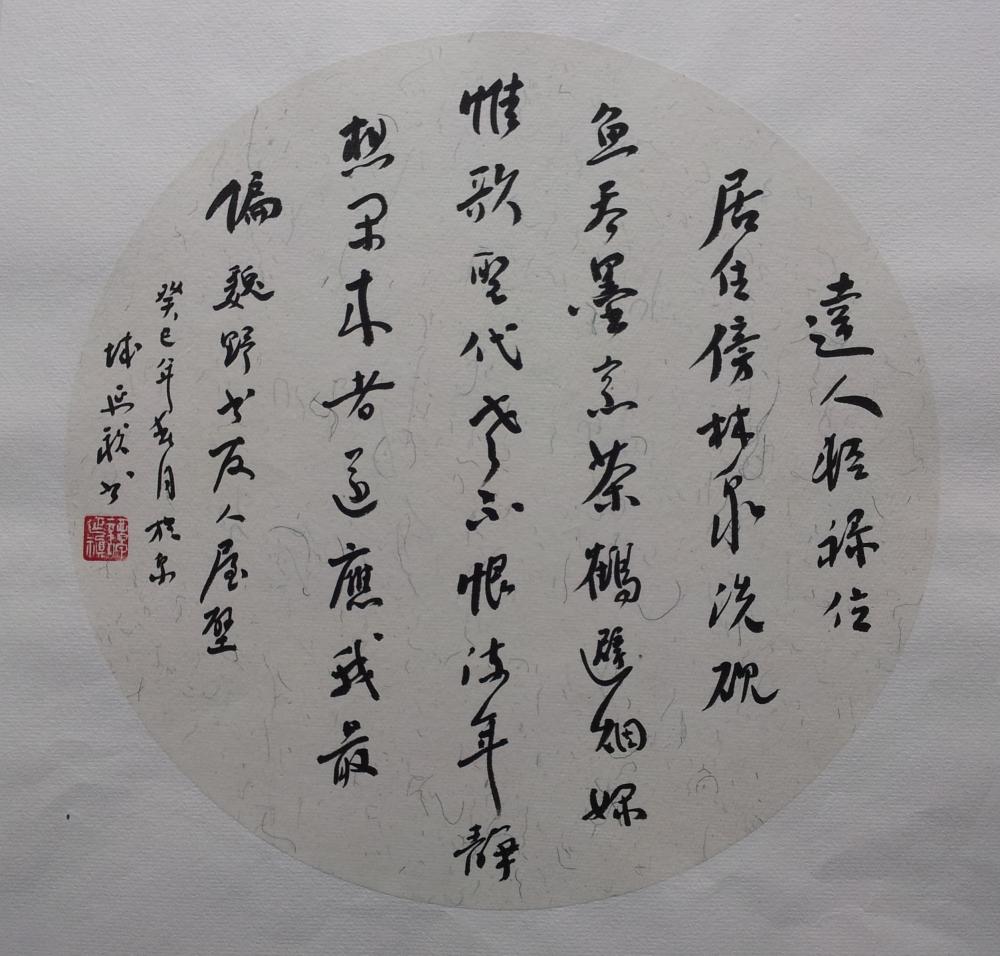 達人輕祿位
居住傍林泉洗硯
魚吞墨烹茶鶴避烟嫻
惟歌聖代老不恨流年靜
想閑來者還應我最
偏 魏野書友人屋壁
癸巳年春月於京
城延書